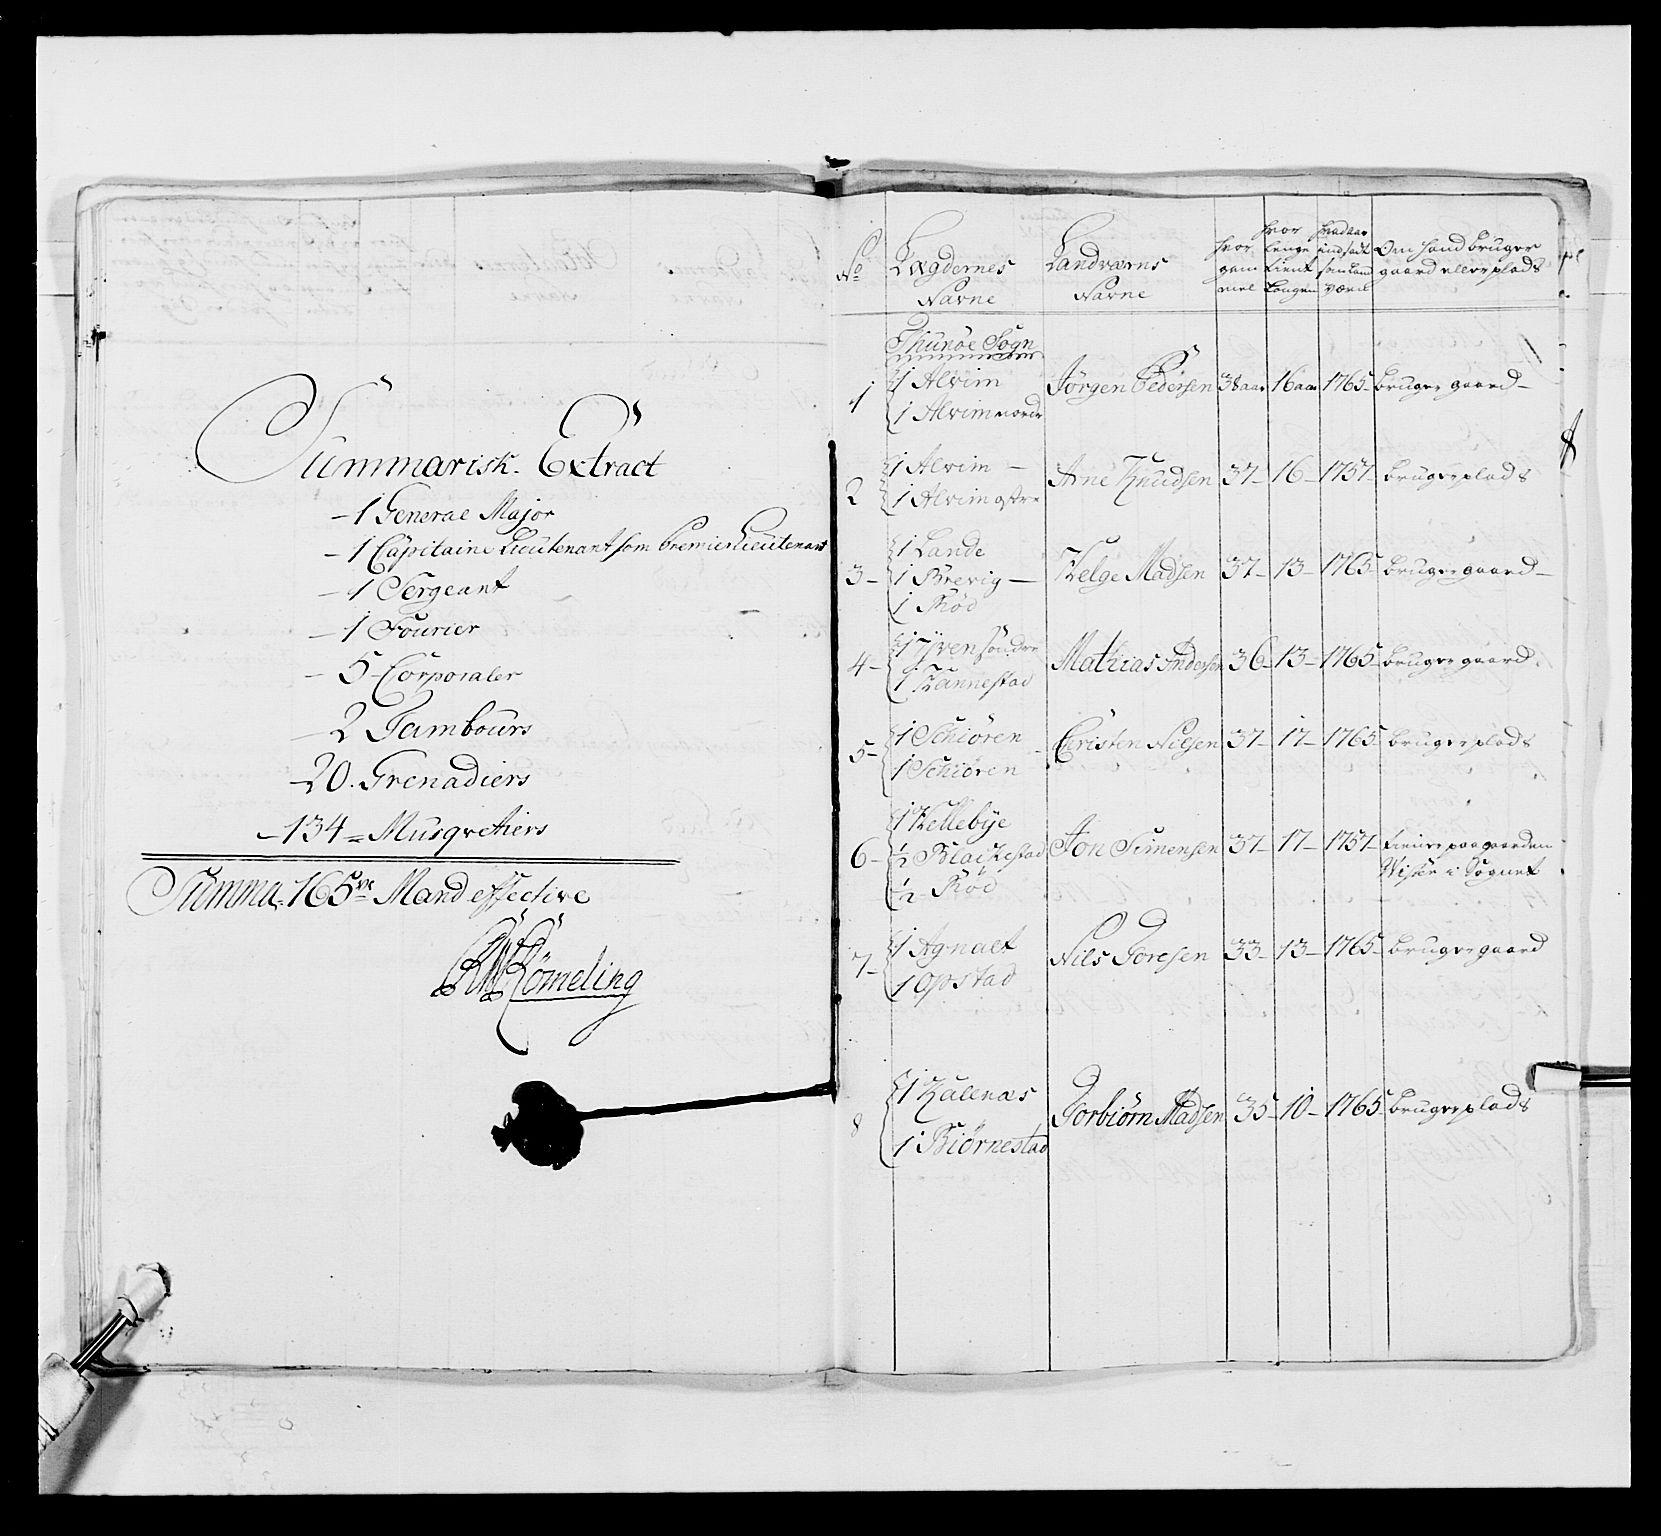 Summarisk Extract
- 1 General Major
- 1 Capitaine Lieutenant som Premier Lieutenant
- 1 Sergeant
- 1 Fourier
- 5 Corporaler
- 2 Tambours
- 20. Grenadiers
- 134 = Musqvetiers
Summa. 165ve Mand effective
Römeling
No
Lægdernes Navne
Landværns Navne
hvor gam mel
hvor lenge tient Kongen
hvad aar indsadt som Land værn
Om hand bruger gaard eller plads
Thunøe Sogn
1 { 1 Alvim
1 Alvim nordr
Jörgen Pedersen 38 aar 16 aar 1765 - bruger gaard -
2 { 1 Alvim -
1 Alvim østre
Arne Knudsen 37 - 16 - 1757 - bruger plads
3 - { 1 Lande
1 Brevig -
1 Röd
Helge Madsen 37 - 13 - 1765 - bruger gaard -
4 - { 1 Yven söndre
1 Kannestad
Mathias Andersen 36 - 13 - 1765 - bruger gaard
5 - { 1 Schiören
1 Schiören
Christen Nilsen 37 - 17 - 1765 - bruger plads
6 - { 1 Kellebye
1/2 Blackestad
1/2 Röd
Jon Simensen 37 - 17 - 1757 - tiener paa gaarden
Wister i Sognet
7 - { 1 Agnalt
1 Opstad
Nils Toresen 33 - 13 - 1765 - bruger gaard
8 { 1 Kalenæs
1 Biörnestad
Torbiörn Madsen 35 - 10 - 1765 - bruger plads